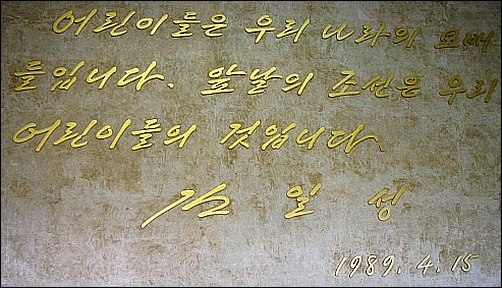 어린이들은 우리 나라의 보배
들입니다. 앞날의 조선은 우리
어린이들의 것입니다.
김 일 성
1989. 4. 15